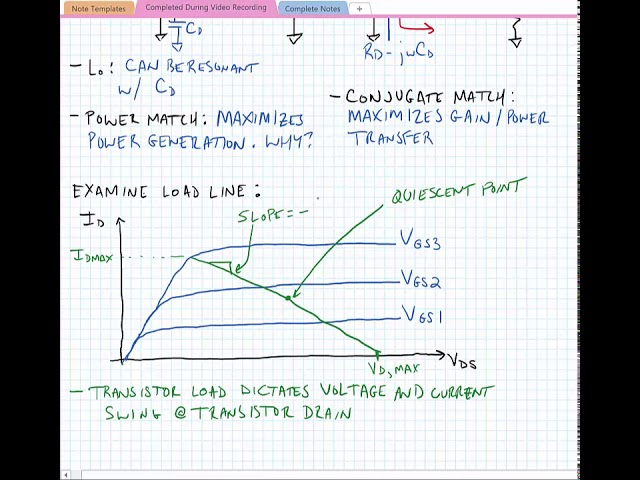 Note Templates
Completed During Video Recording
Complete Notes
+
CD
RD-jωCD
- Lo: CAN BE RESONANT
W/ CD
- POWER MATCH: MAXIMIZES
POWER GENERATION. WHY?
- CONJUGATE MATCH:
MAXIMIZES GAIN/POWER
TRANSFER
EXAMINE LOAD LINE:
ID
SLOPE=-
QUIESCENT POINT
IDMAX
VGS3
VGS2
VGS1
VD,MAX
VDS
- TRANSISTOR LOAD DICTATES VOLTAGE AND CURRENT
SWING @ TRANSISTOR DRAIN